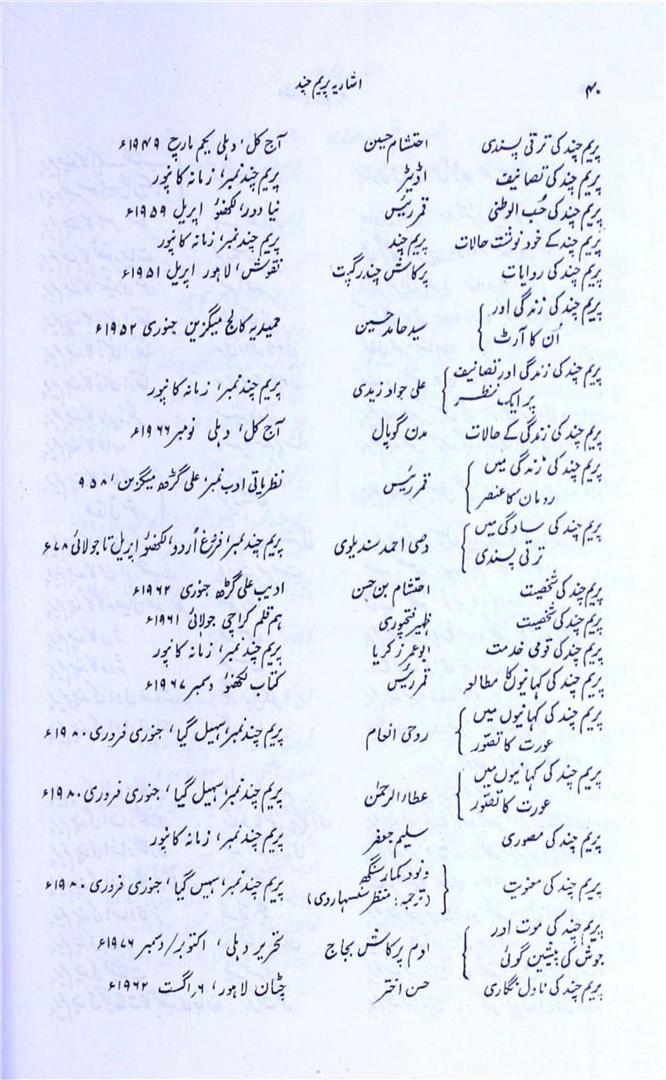 ۴۰
اشاریہ پریم چند
پریم چند کی ترقی پسندی احتشام حسین آج کل، دہلی یکم مارچ ۱۹۴۹ء
پریم چند کی تصانیف اڈیٹر پریم چند نمبر، زمانہ کانپور
پریم چند کی حُب الوطنی قمر رئیس نیا دور، لکھنؤ اپریل ۱۹۵۹ء
پریم چند کے خود نوشت حالات پریم چند پریم چند نمبر، زمانہ کانپور
پریم چند کی روایات پرکاش چندر گپت نقوش، لاہور اپریل ۱۹۵۱ء
پریم چند کی زندگی اور
اُن کا آرٹ سید حامد حسین حمیدیہ کالج میگزین جنوری ۱۹۵۲ء
پریم چند کی زندگی اور تصانیف
پر ایک نظر علی جواد زیدی پریم چند نمبر، زمانہ کانپور
پریم چند کی زندگی کے حالات مدن گوپال آج کل، دہلی نومبر ۱۹۶۶ء
پریم چند کی زندگی میں
رومان کا عنصر قمر رئیس نظریاتی ادب نمبر، علی گڑھ میگزین،
پریم چند کی سادگی میں
ترقی پسندی وصی احمد سندیلوی پریم چند نمبر، فروغ اُردو، لکھنؤ اپریل تا جولائی
پریم چند کی شخصیت احتشام بن حسن ادیب علی گڑھ جنوری ۱۹۶۲ء
پریم چند کی شخصیت ظہیر فتحپوری ہم قلم کراچی جولائی ۱۹۶۱ء
پریم چند کی قومی خدمت ابو عمر زکریا پریم چند نمبر، زمانہ کانپور
پریم چند کی کہانیوں کا مطالعہ قمر رئیس کتاب لکھنؤ دسمبر ۱۹۶۷ء
پریم چند کی کہانیوں میں
عورت کا تصور روحی انعام پریم چند نمبر، سہیل گیا، جنوری فروری ۱۹۸۰ء
پریم چند کی کہانیوں میں
عورت کا تصور عطاء الرحمٰن پریم چند نمبر، سہیل گیا، جنوری فروری ۱۹۸۰ء
پریم چند کی مصوری سلیم جعفر پریم چند نمبر، زمانہ کانپور
پریم چند کی معنویت ونود کمار سنگھ پریم چند نمبر، سہیل گیا، جنوری فروری ۱۹۸۰ء
(ترجمہ: منظر سنسہاردی)
پریم چند کی موت اور
جوش کی پیشین گوئی اوم پرکاش بجاج تحریر دہلی، اکتوبر/دسمبر ۱۹۷۶ء
پریم چند کی ناول نگاری حسن اختر چٹان لاہور، ۶ اگست ۱۹۶۲ء